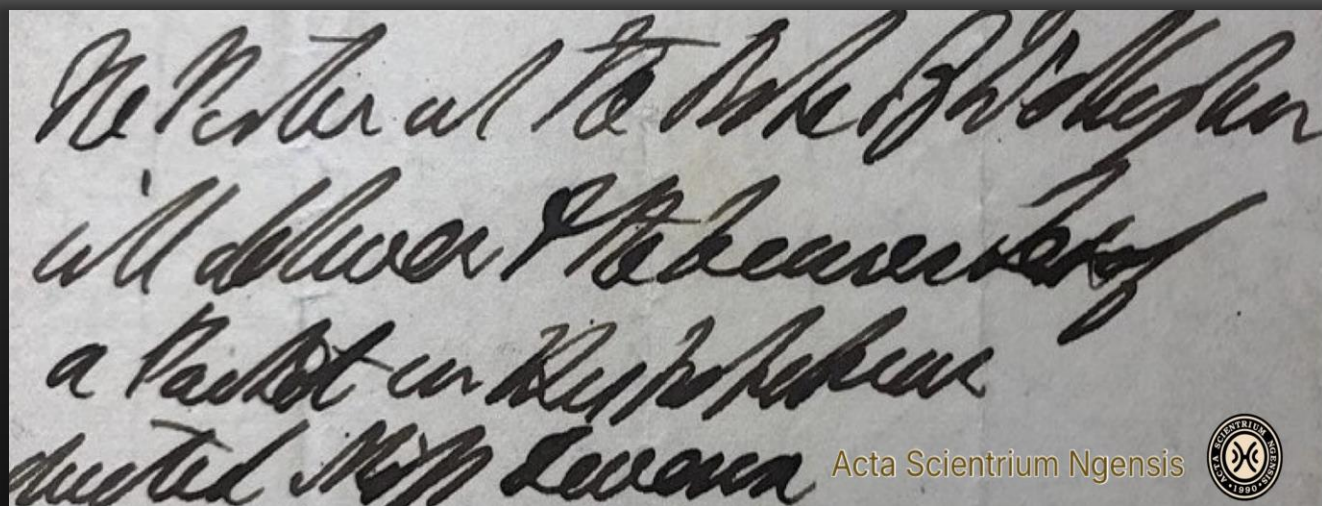 The Porter at the Duke of Wellington
will deliver the bearer
a Packet in
directed Miss
Acta Scientrium Ngensis
ACTA SCIENTRIUM NGENSIS
1990